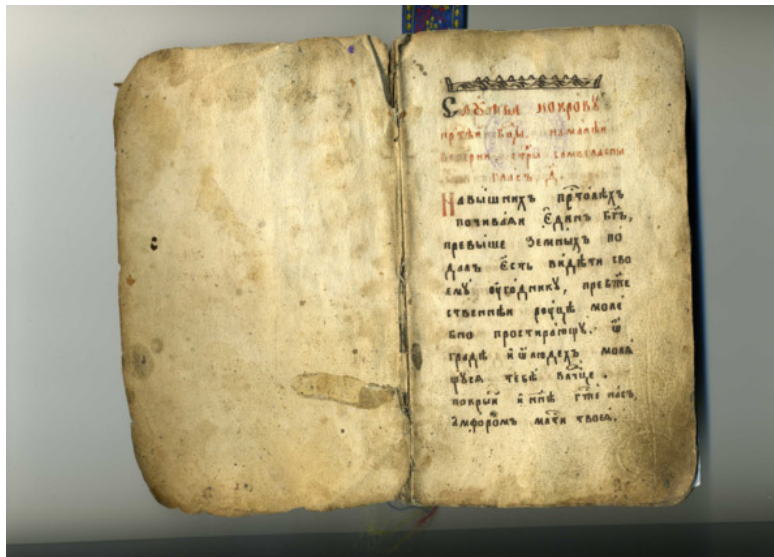 Слꙋ́жба покро́вꙋ
прт҃ѣ́й бц҃ы. на ма́лѣй
вече́рни стр҃ы самогла́сны
гла́съ д҃.
На вы́шнихъ прт҃о́лѣхъ
почива́ѧи Е҆ди́нъ бг҃ъ,
превы́ше земны́хъ по
да́лъ Е҆́сть ви́дѣти сво
емꙋ̀ оу҆го́дникꙋ, превж҃е
ственнѣи рꙋцѣ̀ моле
бно простира́ющꙋ. ѿ
гра́дѣ и҆ ѿ лю́дехъ молѧ
щꙋсѧ тебѣ̀ влⷣце.
покры́й и҆ нн҃ѣ гж҃е на́съ
а҆мфо́ромъ ма́ти твоеѧ̀.